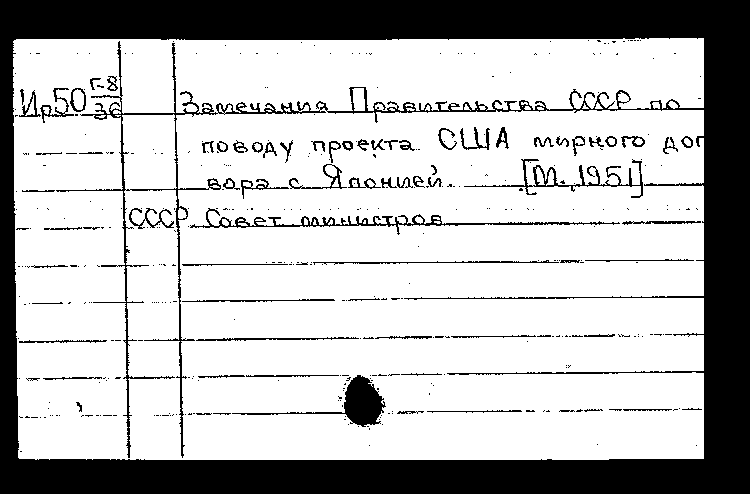 Ир50 Г-8/36 Замечания Правительства СССР по
поводу проекта США мирного дог
вора с Японией. [М., 1951]
СССР. Совет министров